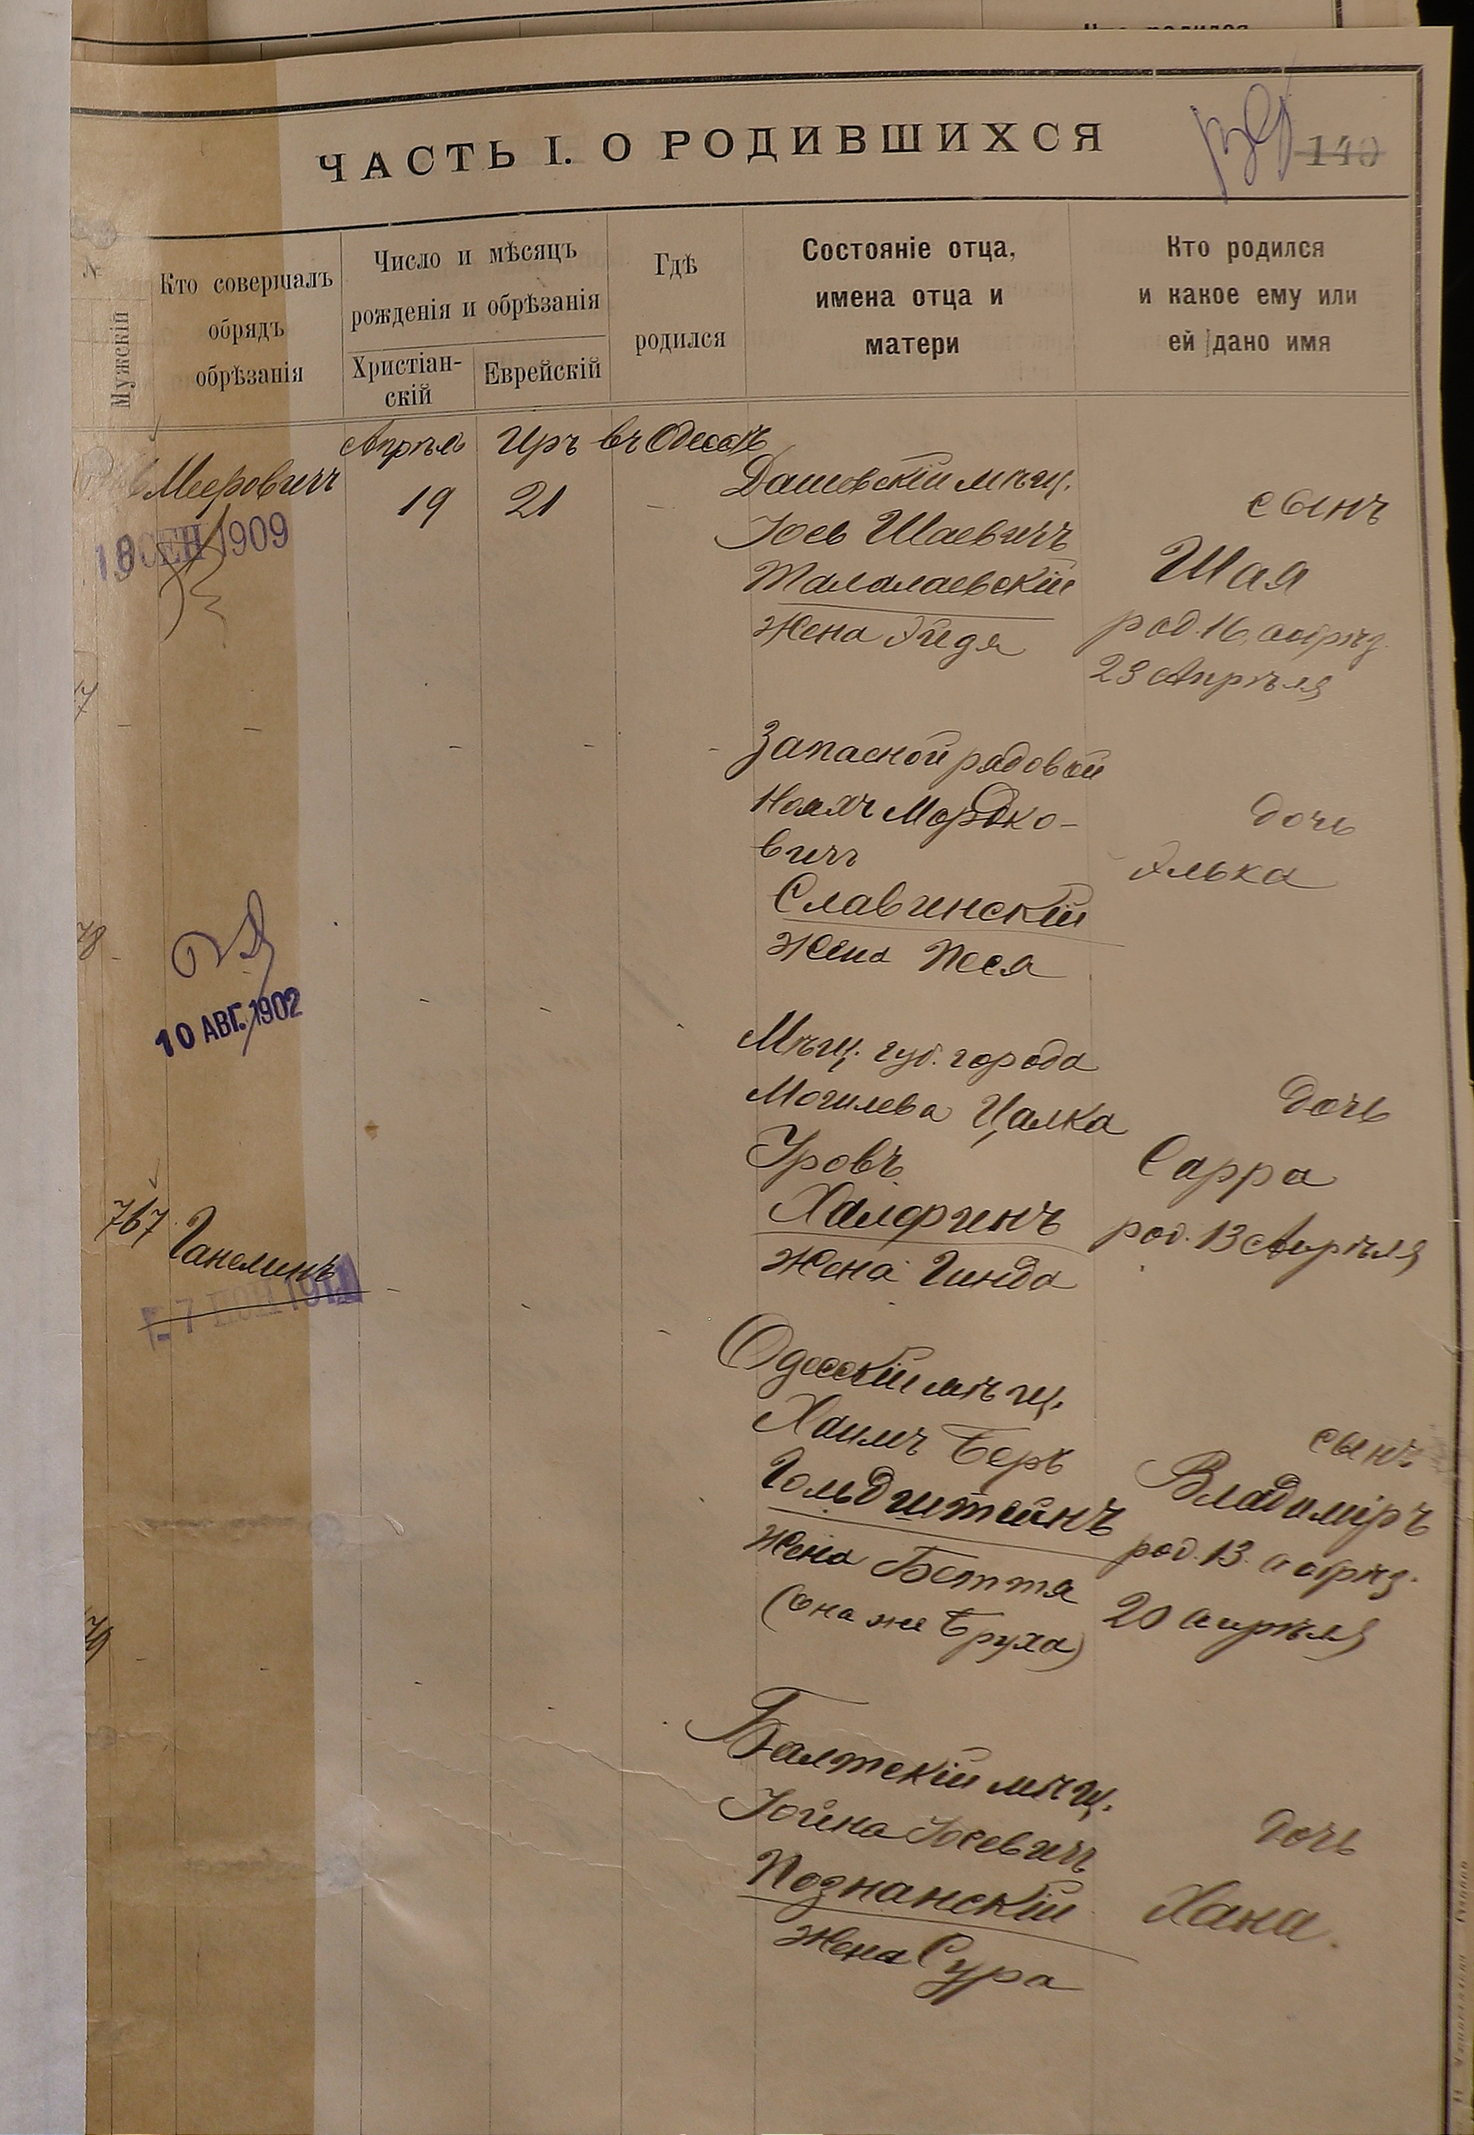 ЧАСТЬ I. О РОДИВШИХСЯ
140
№
Мужскій
Кто совершалъ
обрядъ
обрѣзанія
Число и мѣсяцъ
рожденія и обрѣзанія
Христіан-
скій
Еврейскій
Гдѣ
родился
Состояніе отца,
имена отца и
матери
Кто родился
и какое ему или
ей дано имя
Мееровичъ
18 СЕН 1909
Апрѣль
19
Иръ
21
въ Одессѣ
Дашевскій мѣщ.
Іось Шаевичъ
Талалаевскій
Жена Эйдя
сынъ
Шая
род. 16, а обрѣз.
23 Апрѣля
Запасной рядовой
Ноахъ Мордко-
вичъ
Славинскій
Жена Песя
дочь
Элька
78
10 АВГ. 1902
Мѣщ. губ. города
Могилева Цалка
Уровъ
Халфинъ
Жена Гинда
дочь
Сарра
род. 13 Апрѣля
767
Ганелинъ
Одесскій мѣщ.
Хаимъ Беръ
Гольдштейнъ
Жена Бетя
(она же Бруха)
сынъ
Владиміръ
род. 13. а обрѣз.
20 апрѣля
79
Балтскій мѣщ.
Іойна Іосевичъ
Познанскій
Жена Сура
дочь
Хана.